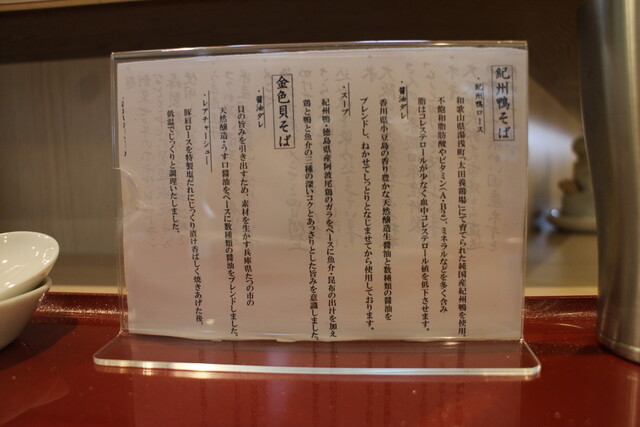 紀州鴨そば
・紀州鴨ロース
和歌山県湯浅町「太田養鶏場」にて育てられた純国産紀州鴨を使用。
不飽和脂肪酸やビタミン(A・B2)、ミネラルなどを多く含み
脂はコレステロールが少なく血中コレステロール値を低下させます。
・醤油ダレ
香川県小豆島の香り豊かな天然醸造生醤油と数種類の醤油を
ブレンドし、ねかせてしっとりとなじませてから使用しております。
・スープ
紀州鴨・徳島県産阿波尾鶏のガラをベースに魚介・昆布の出汁を加え
鶏と鴨と魚介の三種の深いコクとあっさりとした旨みを意識しました。
金色貝そば
・醤油ダレ
貝の旨みを引き出すため、素材を生かす兵庫県たつの市の
天然醸造・うす口醤油をベースに数種類の醤油をブレンドしました。
・レアチャーシュー
豚肩ロースを特製塩だれにじっくり漬け香ばしく焼きあげた後、
低温でじっくりと調理いたしました。